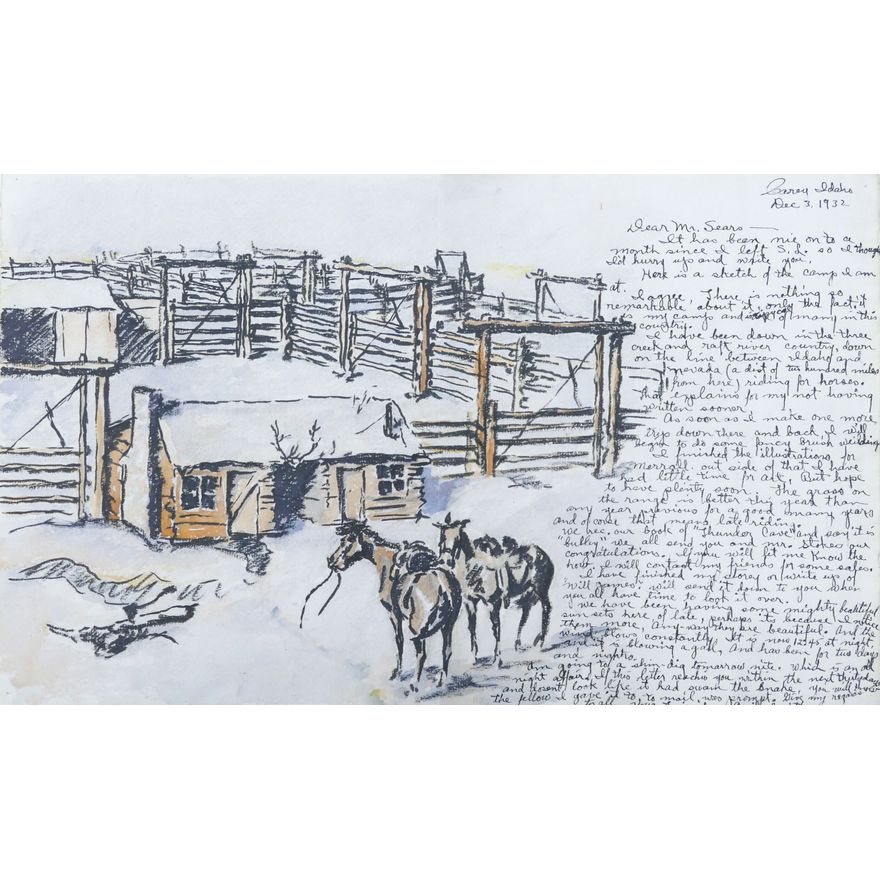 Carey Idaho
Dec 3, 1932
Dear Mr. Sears —
It has been nie on to a
month since I left S.L. so I thought
I'd hurry up and write you.
Here is a sketch of the camp I am
at.
There is nothing so
remarkable about it, only the fact it is
my camp and of many in this
country.
I have been down in the three
creek and raft river country down
on the line between Idaho and
Nevada (a dist of two hundred miles
from here) riding for horses.
That explains for my not having
written sooner.
As soon as I make one more
trip down there and back I will
begin to do some fancy Brush weilding
I finished the illustrations for
Merrall. out side of that I have
had little time for art, But hope
to have plenty soon. The grass on
the range is better this year than
any year previous for a good many years
and of corse that means late riding.
We hree. our book of "Thunder Cave" and say it is
"bulley" we all send you and Mr. Stokes our
congratulations. If you will let me know the
hour I will contact my friends for some sales.
I have finished my storey or write up of
"Will James". will send it down to you when
you all have time to look it over.
We have been having some mighty beautiful
sun sets here of late, perhaps its because I notice
them more. Any way they are beautiful. And the
wind blows constantly. It is now 12:45 at night
and it is blowing a gail, And has been for two days
and nights.
Am going to a shin-dig tomarrow nite. which is an all
night affair. If this letter reaches you within the next thirty days
and dosent look like it had swam the snake, you will know
the fellow I gave it to, to mail, was prompt. Give my regards